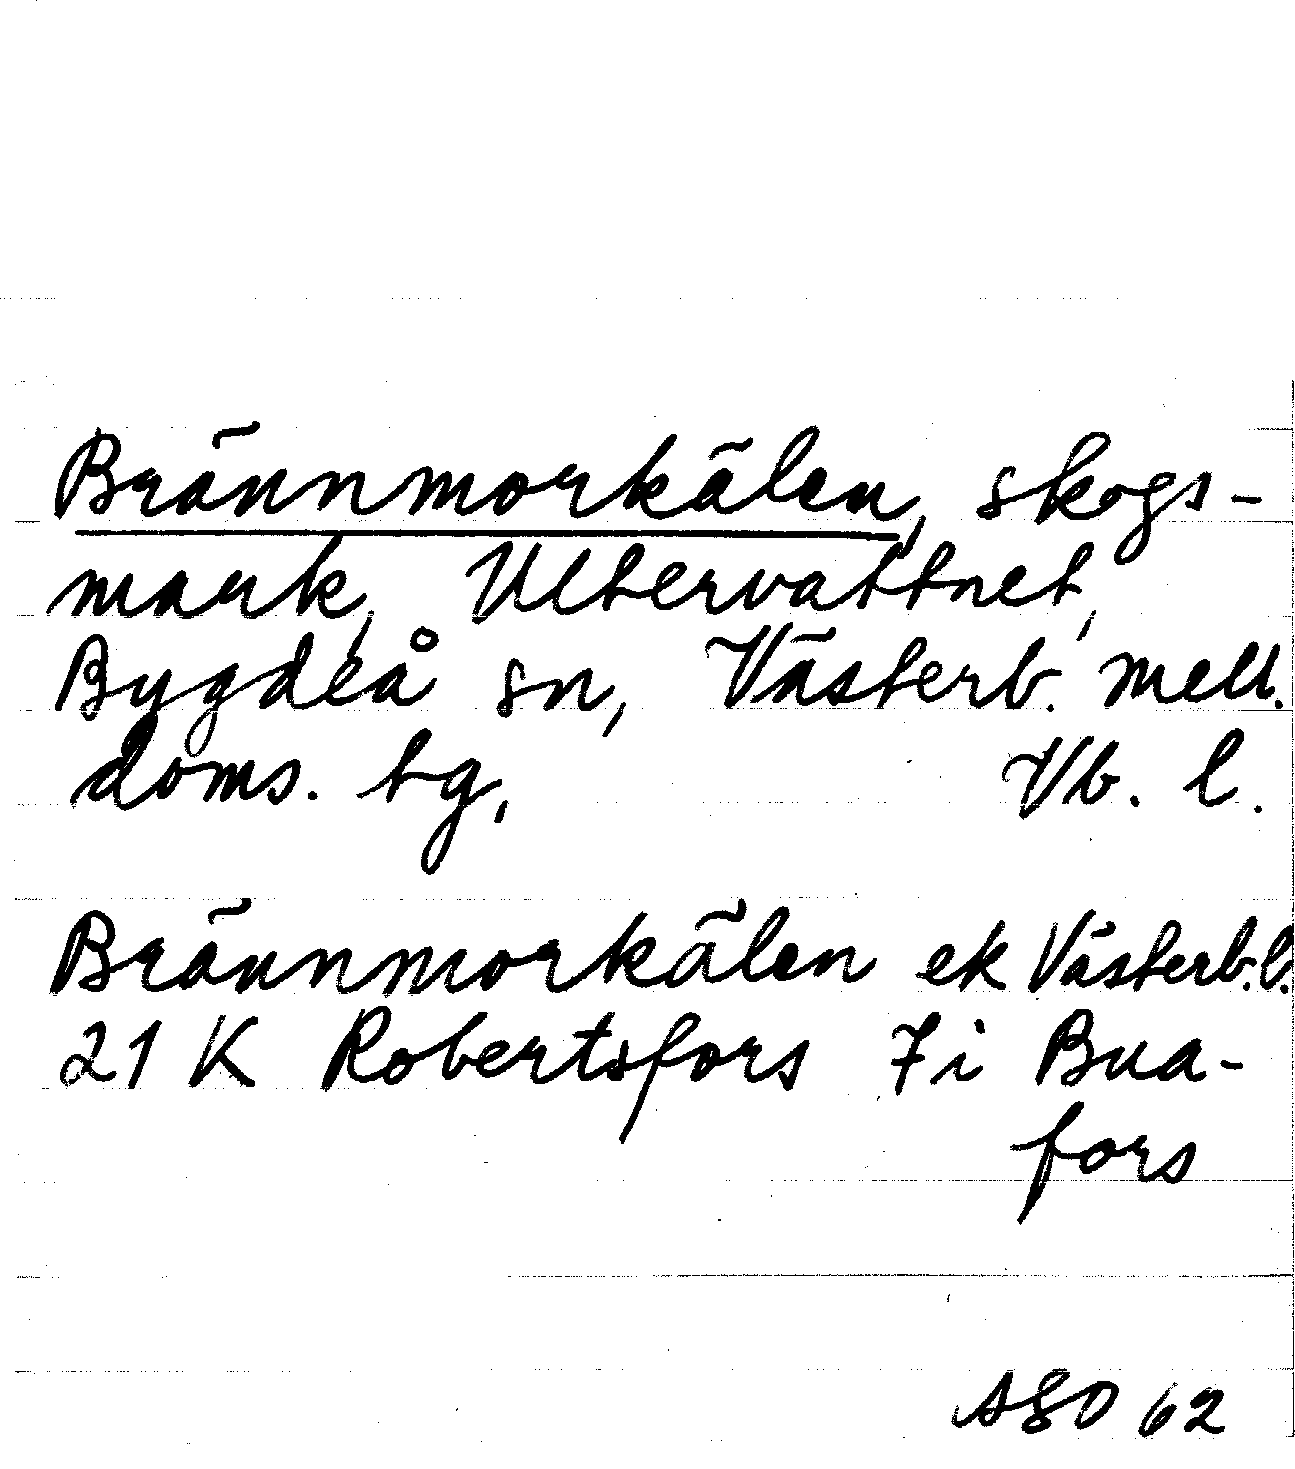 Brännmorkälen, skogs-
mark, Ultervattnet,
Bygdeå sn, Västerb. mell.
doms. tg, Vb. l.
Brännmorkälen ek Västerb. l.
21 K Robertsfors 7i Bua-
fors
ASO 62